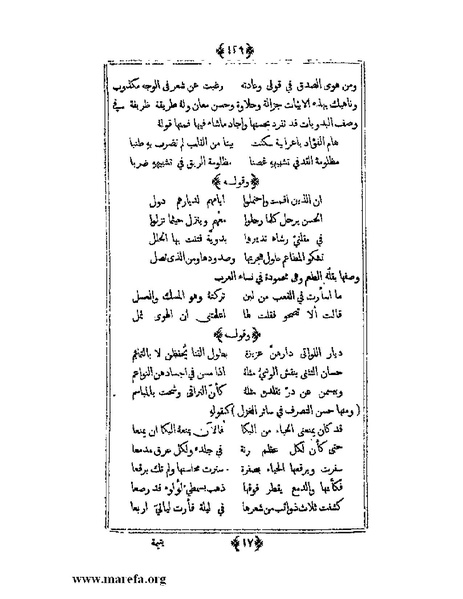 ﴿١٢٩﴾
ومن هوى الصدق في قولى وعادته رغبت عن شعر فى الوجه مكذوب
وناهيك بهذه الابيات جزالة وحلاوة وحسن معان وله طريقة ظريفة في
وصف البدويات قد تفرد بحسنها واجاد ماشاء فيها فمنها قوله
هام الفؤاد باعرابية سكنت بيتا من القلب لم تضرب به طنبا
مظلومة القد في تشبيهه غصنا مظلومة الريق في تشبيهه ضربا
﴿وقوله﴾
ان الذين اقمت واحتملوا ايامهم لديارهم دول
الحسن يرحل كلما رحلوا معهم وينزل حيثما نزلوا
في مقلتي رشاء تديرهما بدوية فتنت بها الحلل
تشكو المطاعم طول هجرتها وصدودها ومن الذى تصل
وصفها بقلة الطعم وهى محمودة في نساء العرب
ما اسأرت في القعب من لبن تركته وهو المسك والعسل
قالت ألا تصحو فقلت لها اعلمتنى ان الهوى ثمل
﴿وقوله﴾
ديار اللواتى دارهن عزيزة بطول القنا يحفظن لا بالتمائم
حسان التثنى ينقش الوشى مثله اذا مسن في اجسادهن النواعم
ويبسمن عن در تقلدن مثله كأن التراقى وشحت بالمباسم
( ومنها حسن التصرف في سائر الغزل ) كقوله
قد كان يمنعنى الحياء من البكا فالآن يمنعه البكا ان يمنعا
حتى كأن لكل عظم رنة في جلده ولكل عرق مدمعا
سفرت وبرقعها الحياء بصفرة سترت محاسنها ولم تك برقعا
فكأنها والدمع يقطر فوقها ذهب بسمطي لؤلوء قد رصعا
كشفت ثلاث ذوائب من شعرها في ليلة فأرت ليالي اربعا
﴿١٧﴾ يتيمة
www.marefa.org